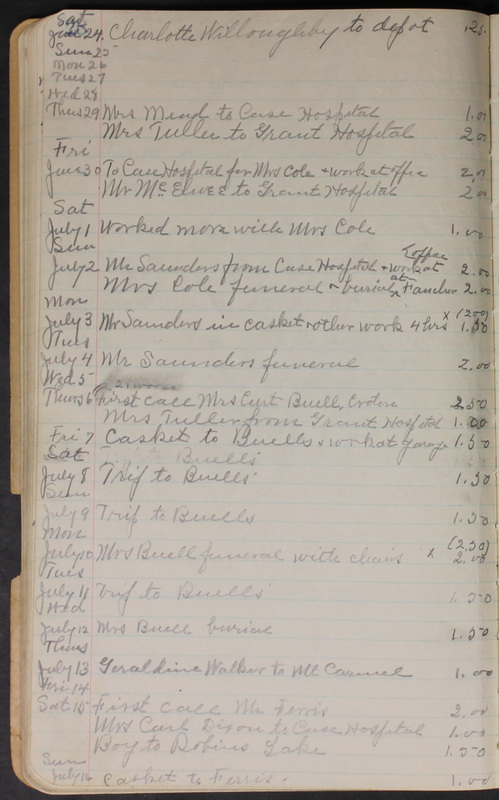 Sat
June 24. Charlotte Willoughby to depot .25
Sun 25
Mon 26
Tues 27
Wed 28
Thurs 29 Mrs Mead to Case Hospital 1.00
Mrs Tuller to Grant Hospital 2.00
Fri
June 30 To Case Hospital for Mrs Cole + work at office 2.00
Mr McElwee to Grant Hospital 2.00
Sat
July 1 Worked more with Mrs Cole 1.00
Sun
July 2 Mr Saunders from Case Hospital + work at office 2.00
Mrs Cole funeral + burial at Fancher 2.00
Mon
July 3 Mr Saunders in casket + other work 4 hrs x (2.00) 1.50
Tues
July 4 Mr Saunders funeral 2.00
Wed 5
Thurs 6 First call Mrs Curt Buell, Croton 2.50
Mrs Tuller from Grant Hospital 1.00
Fri 7 Casket to Buells + work at garage 1.50
Sat Buells
July 8 Trip to Buells 1.50
Sun
July 9 Trip to Buells 1.50
Mon
July 10 Mrs Buell funeral with chairs x (2.50) 2.00
Tues
July 11 Trip to Buells 1.50
Wed
July 12 Mrs Buell burial 1.50
Thurs
July 13 Geraldine Walker to Mt Carmel 1.00
Fri 14
Sat 15 First call Mr Ferris 2.00
Mrs Carl Dixon to Case Hospital 1.00
Boy to Robins Lake 1.50
Sun
July 16 Casket to Ferris. 1.00